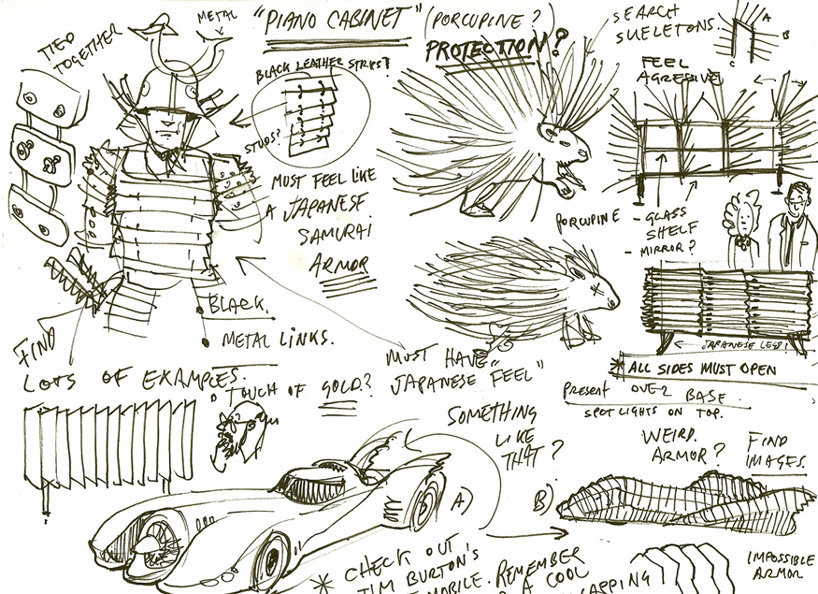 TIED
TOGETHER
METAL
"PIANO CABINET" (PORCUPINE?)
PROTECTION?
SEARCH
SKELETONS.
A
B
C
FEEL
AGRESSIVE
BLACK LEATHER STRIPS?
STUDS?
MUST FEEL LIKE
A JAPANESE
SAMURAI
ARMOR
PORCUPINE
- GLASS
SHELF
- MIRROR?
BLACK.
METAL LINKS.
FIND
LOTS OF EXAMPLES.
TOUCH OF GOLD?
MUST HAVE "
JAPANESE FEEL"
JAPANESE LEGS!
* ALL SIDES MUST OPEN
Present OVER BASE
SPOT LIGHTS ON TOP.
SOMETHING
LIKE
THAT?
A)
B)
WEIRD.
ARMOR?
FIND
IMAGES.
* CHECK OUT
TIM BURTON'S
MOBILE. REMEMBER
A COOL
IMPOSSIBLE
ARMOR